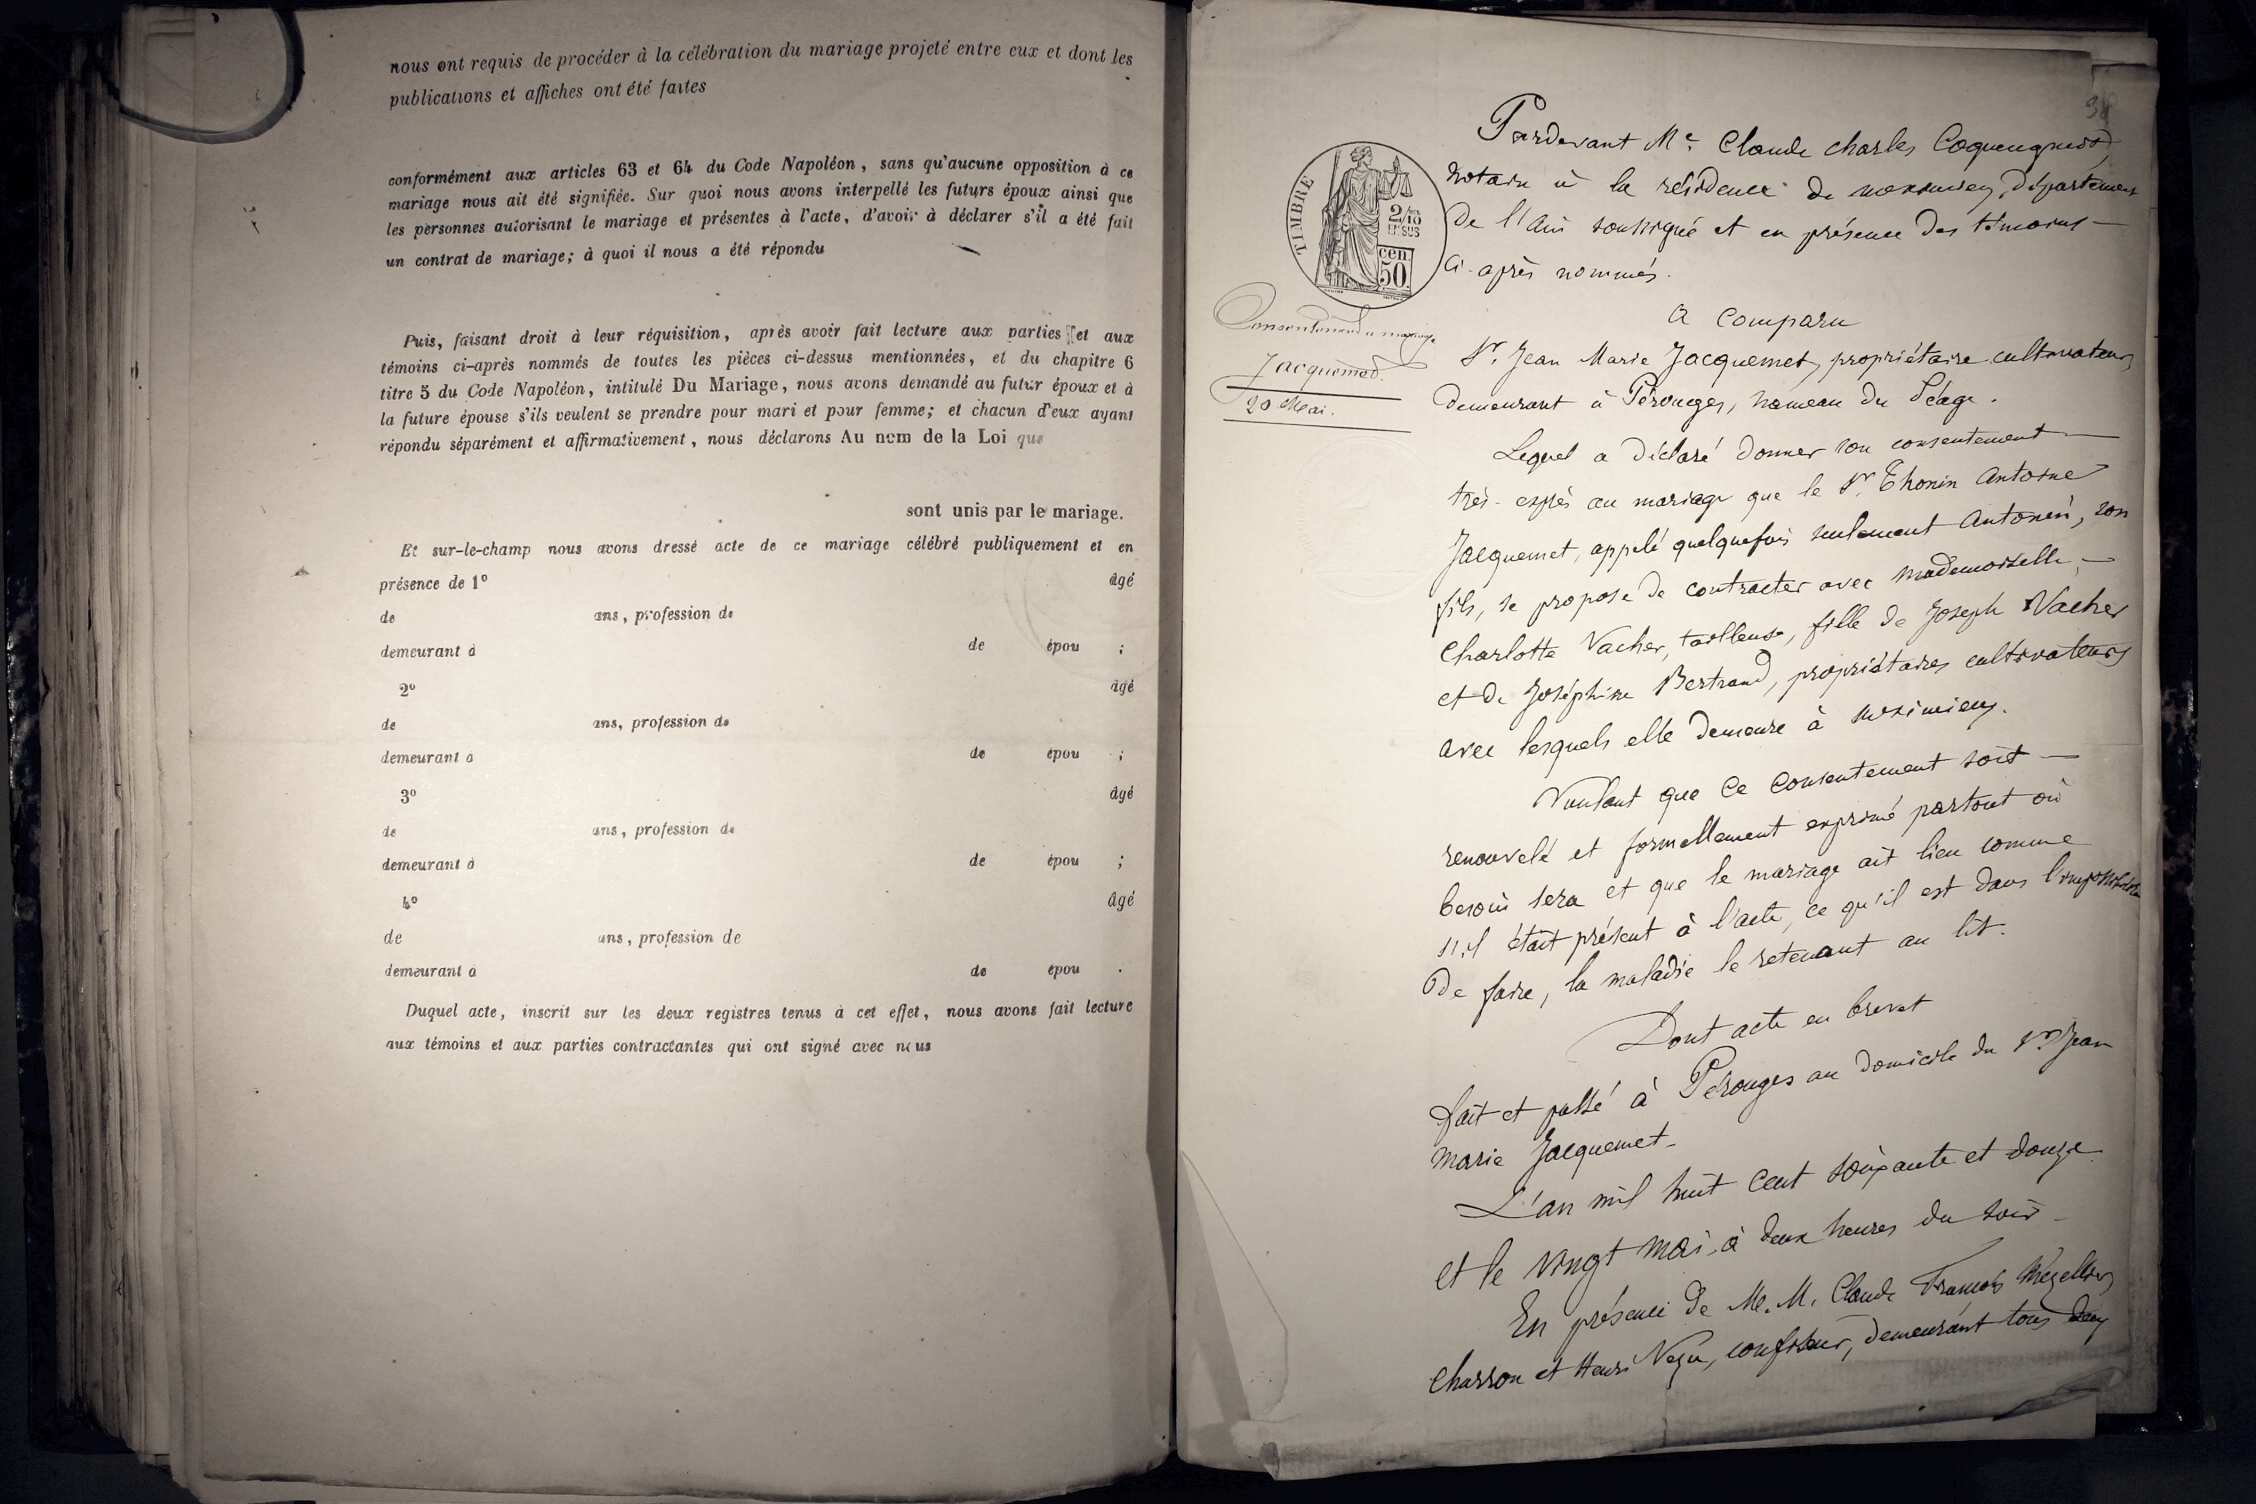 nous ont requis de procéder à la célébration du mariage projeté entre eux et dont les
publications et affiches ont été faites
conformément aux articles 63 et 64 du Code Napoléon, sans qu'aucune opposition à ce
mariage nous ait été signifiée. Sur quoi nous avons interpellé les futurs époux ainsi que
les personnes autorisant le mariage et présentes à l'acte, d'avoir à déclarer s'il a été fait
un contrat de mariage; à quoi il nous a été répondu
Puis, faisant droit à leur réquisition, après avoir fait lecture aux parties et aux
témoins ci-après nommés de toutes les pièces ci-dessus mentionnées, et du chapitre 6
titre 5 du Code Napoléon, intitulé Du Mariage, nous avons demandé au futur époux et à
la future épouse s'ils veulent se prendre pour mari et pour femme; et chacun d'eux ayant
répondu séparément et affirmativement, nous déclarons Au nom de la Loi que
sont unis par le mariage.
Et sur-le-champ nous avons dressé acte de ce mariage célébré publiquement et en
présence de 1° âgé
de ans, profession de
demeurant à de épou ;
2° âgé
de ans, profession de
demeurant à de épou ;
3° âgé
de ans, profession de
demeurant à de épou ;
4° âgé
de ans, profession de
demeurant à de épou .
Duquel acte, inscrit sur les deux registres tenus à cet effet, nous avons fait lecture
aux témoins et aux parties contractantes qui ont signé avec nous
38
TIMBRE
2/10
EN SUS
cen.
50.
Consentement a mariage
Jacquemed.
20 Mai.
Pardevant Me. Claude charles
notaire à la résidence de meximieux, Département
de l'Ain soussigné et en présence des témoins —
ci-après nommés.
a comparu
Sr. Jean Marie Jacquemet, propriétaire cultivateur,
demeurant à Pérouges, hameau du Péage.
Lequel a déclaré donner son consentement —
très-exprès au mariage que le Sr. Thonin Antoine
Jacquemet, appelé quelquefois seulement Antonin, son
fils, se propose de contracter avec mademoiselle, —
Charlotte Vacher, tailleuse, fille de Joseph Vacher
et de Joséphine Bertrand, propriétaires cultivateurs
avec lesquels elle demeure à meximieux.
Voulant que ce consentement soit —
renouvelé et formellement exprimé partout où
besoin sera et que le mariage ait lieu comme
s'il était présent à l'acte, ce qu'il est dans l'impossibilité
De faire, la maladie le retenant au lit.
Dont acte en brevet
fait et passé à Pérouges au domicile du Sr. Jean
marie Jacquemet.
L'an mil huit cent soixante et douze
et le vingt mai, à deux heures du soir —
En présence de M. M. Claude François
charron et Henri confiseur, demeurant tous deux